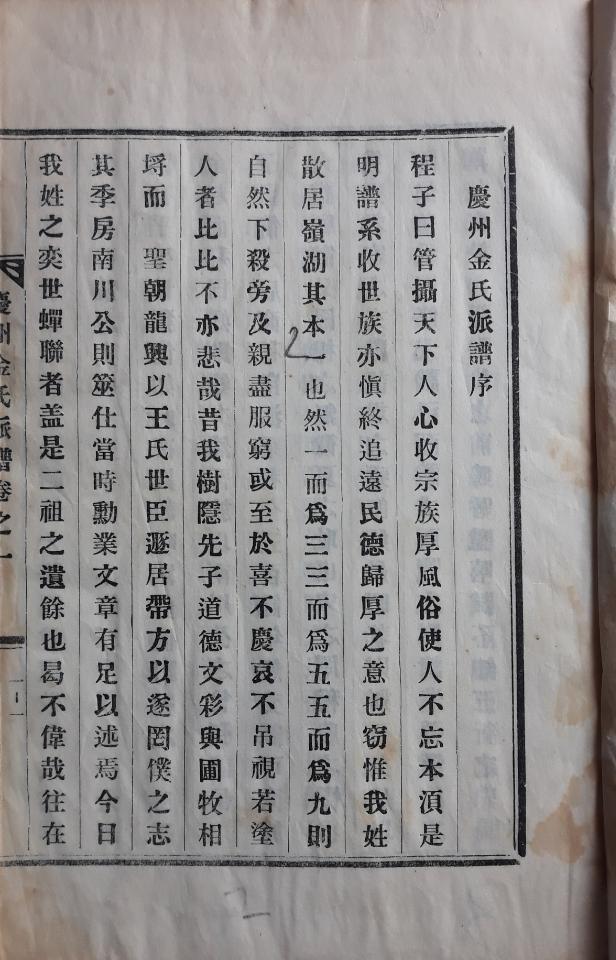 慶州金氏派譜序
程子曰管攝天下人心收宗族厚風俗使人不忘本湏是
明譜系收世族亦愼終追遠民德歸厚之意也窃惟我姓
散居嶺湖其本一也然一而爲三三而爲五五而爲九則
自然下殺旁及親盡服窮或至於喜不慶哀不吊視若塗
人者比比不亦悲哉昔我樹隱先子道德文彩與圃牧相
埒而聖朝龍興以王氏世臣遯居帶方以遂罔僕之志
其季房南川公則筮仕當時勳業文章有足以述焉今日
我姓之奕世蟬聯者盖是二祖之遺餘也曷不偉哉往在
慶州金氏派譜卷之一
一
2